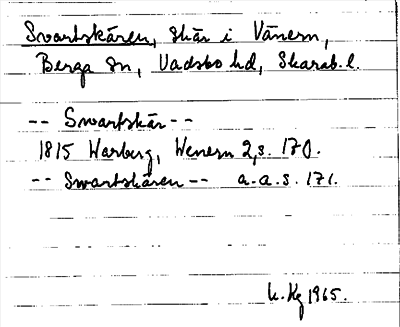 Svartskären, skär i Vänern,
Berga sn, Vadsbo hd, Skarab. l.
-- Swartskär --
1815 Warberg, Wenern 2, s. 170.
-- Swartskären -- a. a. s. 171.
K. Kg 1965.